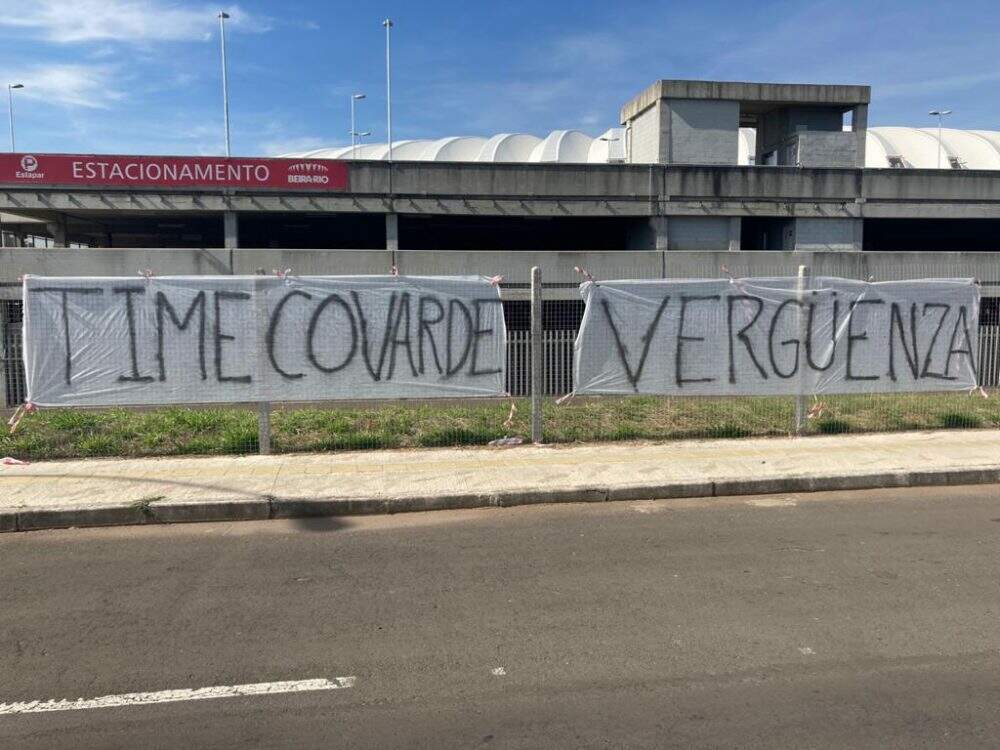 Estapar
ESTACIONAMENTO
BEIRA-RIO
TIME COVARDE
VERGÜENZA